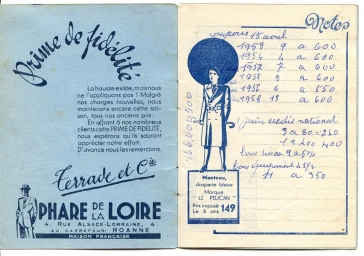 Prime de fidélité
La hausse existe, mais nous
ne l'appliquons pas! Malgré
nos charges nouvelles, nous
maintenons encore cette saison,
tous nos anciens prix.
En offrant à nos nombreux
clients cette PRIME DE FIDELITÉ,
nous espérons qu'ils sauront
apprécier notre effort.
D'avance nous les remercions.
Terrade et Cie
PHARE DE LA LOIRE
4, RUE ALSACE-LORRAINE, 4
AU CARREFOUR, ROANNE
MAISON FRANÇAISE
Notes
coupons 15 avril
1953 9 a 600
1954 4 a 600
1957 7 a 600
1958 8 a 600
1956 6 a 550
1958 13 a 600
crédit national
3 a 80 = 240
4 9 200 400
bons
11 a 350
166000500
Manteau,
draperie bleue
Marque
"LE PELICAN"
Prix imposé
Le 6 ans 149